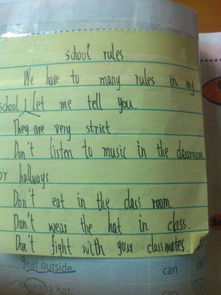 school rules
We have to many rules in my
school, let me tell you.
They are very strict
Don't listen to music in the classroom
or hallways
Don't eat in the class room.
Don't wear the hat in class.
Don't fight with your classmates
eat outside
can
can